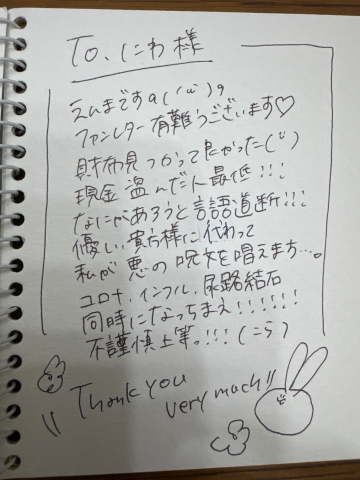 To. にわ様
えんまですq(´ω`)q
ファンレター有難うございます♡
財布見つかって良かった(
現金盗んだ人最低!!!
なにがあろうと言語道断!!!
優しい貴方様に代わって
私が悪の呪文を唱えまち…。
コロナ、インフル、尿路結石
同時になっちまえ!!!!!!
不謹慎上等っ!!!
Thank you
very much!!